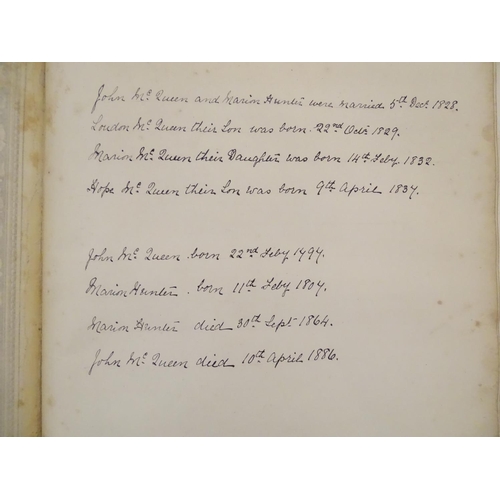 John Mc Queen and Marion Hunter were married 5th Decr 1828.
Loudon Mc Queen their Son was born 22nd Octr 1829.
Marion Mc Queen their Daughter was born 14th Feby 1832.
Hope Mc Queen their Son was born 9th April 1837.
John Mc Queen born 22nd Feby 1797.
Marion Hunter born 11th Feby 1807.
Marion Hunter died 30th Sept 1864.
John Mc Queen died 10th April 1886.